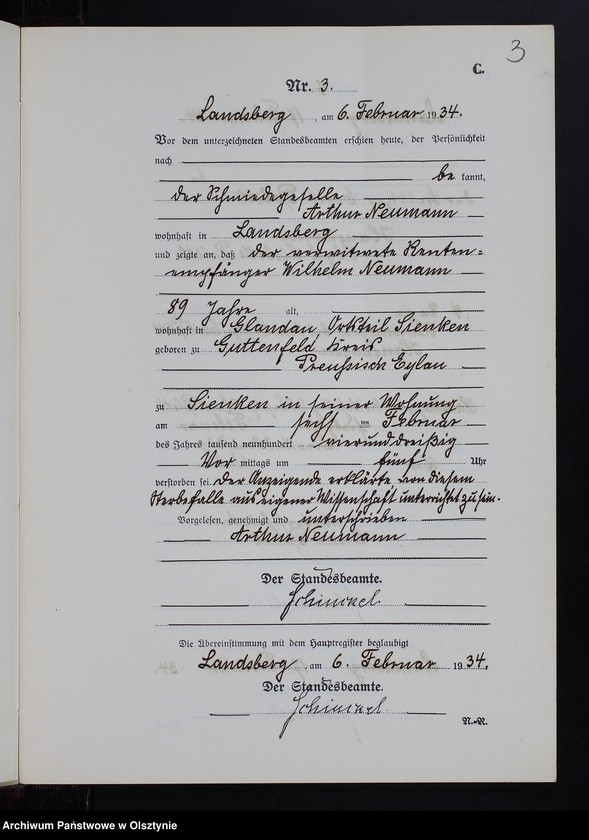 3
C.
Nr. 3.
Landsberg, am 6. Februar 1934.
Vor dem unterzeichneten Standesbeamten erschien heute, der Persönlichkeit
nach
be kannt,
der Schmiedegeselle
Arthur Neumann
wohnhaft in Landsberg
und zeigte an, daß der verwitwete Renten=
empfänger Wilhelm Neumann
89 Jahre alt,
wohnhaft in Glandau Ortsteil Sienken
geboren zu Guttenfeld Kreis
Preußisch Eylau
zu Sienken in seiner Wohnung
am sechs ten Februar
des Jahres tausend neunhundert vierunddreißig
Vor mittags um fünf Uhr
verstorben sei. Der Anzeigende erklärte von diesem
Sterbefalle aus eigener Wissenschaft unterrichtet zu sein.
Vorgelesen, genehmigt und unterschrieben
Arthur Neumann
Der Standesbeamte.
Schinckel
Die Übereinstimmung mit dem Hauptregister beglaubigt
Landsberg, am 6. Februar 1934.
Der Standesbeamte.
Schinckel
N.-R.
Archiwum Państwowe w Olsztynie